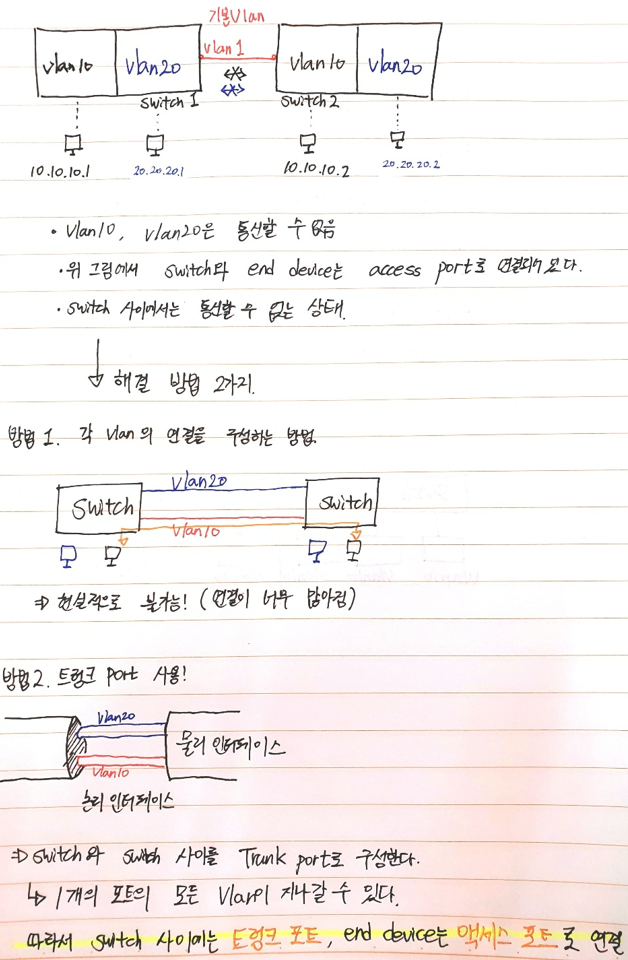 기본Vlan
vlan 1
vlan10
vlan20
vlan10
vlan20
switch 1
switch 2
10.10.10.1
20.20.20.1
10.10.10.2
20.20.20.2
• Vlan10, vlan20은 통신할 수 없음
• 위 그림에서 switch와 end device는 access port로 연결되어 있다.
• switch 사이에서는 통신할 수 없는 상태.
해결 방법 2가지.
방법 1. 각 Vlan의 연결을 구성하는 방법.
Vlan20
Switch
switch
Vlan10
⇒ 현실적으로 불가능! (연결이 너무 많아짐)
방법2. 트렁크 port 사용!
Vlan20
물리 인터페이스
Vlan10
논리 인터페이스
⇒ switch와 switch 사이를 Trunk port로 구성한다.
↳ 1개의 포트의 모든 Vlan이 지나갈 수 있다.
따라서 switch 사이에는 트렁크 포트, end device는 액세스 포트로 연결